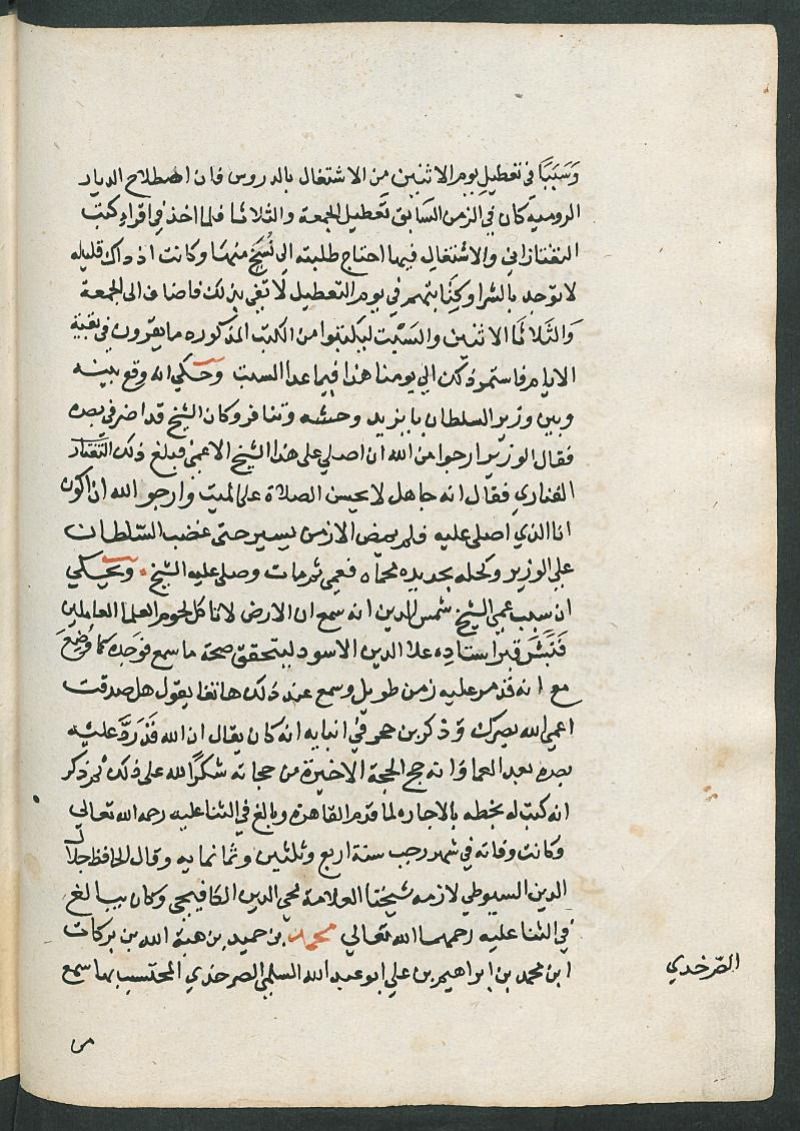 وَسَبَبًا في تعطيل يوم الاثنين من الاشتغال بالدروس فان اصطلاح الديار
الروميه كان في الزمن السَابق تَعطيل الجمعة والثلاثا فلما اخذ في اقراء كتب
التفتازاني والاشتغال فيها احتاج طلبته الي نُسَخ منها وكانت اذ ذاك قليله
لا توجد بالشرا وكِتَابتهم في يوم التعطيل لا تفي بذلك فاضاف الى الجمعة
وَالثَلاثا الاثنين والسَبْت ليكتبوا من الكتب المذكوره ما يقرون في بقية
الايام فاستمر ذلك الي يومنا هذا فيما عدا السبت وحكي انه وقع بينه
وبين وزير السلطان بايزيد وحشه وتنافر وكان الشيخ قد اضر في بصره
فقال الوزير ارجوا من الله ان اصلي على هذا الشيخ الاعمى فبلغ ذلك
الفناري فقال انه جاهل لا يحسن الصلاة على الميت وارجو الله ان اكون
انا الذي اصلى عليه فلم يمض الا زمن يسير حتى غضب السّلطان
على الوزير وكحله بحديده محماه فعمي ثم مات وصلى عليه الشيخ . ويحكي
ان سبب عمي الشيخ شمس الدين انه سمع ان الارض لا تاكل لحوم العلما العاملين
فَنَبَشَ قبر استاده علا الدين الاسود ليتحقق صحة ما سمع فوَجده كما وُضِعَ
مع انه قد مر عليه زمن طويل وسمع عند ذلك هاتفا يقول هل صدقت
اعمي الله بصرك وَذكر بن حجر في انبايه انه كان يقال ان الله قد رَدَّ عليْه
بصره بعد العما وَانه حج الحجة الاخيرة من حجاته شكرًا لله على ذلك ثم ذكر
انه كتب له بخطه بالاجازه لما قدم القاهرة وبالغ في الثنا عليه رحمه الله تعالي
وكانت وفاته في شهر رجب سنة اربع وثلثين وثمانمايه وقال الحافظ جلال
الدين السيوطي لازمه شيخنا العلامة محي الدين الكافيجي وكان يبالغ
في الثنا عليه رحمهما الله تعالي محمد بن حميد بن هبة الله بن بركات
ابن محمد بن ابراهيم بن علي ابو عبد الله السلمي الصرخدي المحتسب بها سمع
الصّرخدي
من